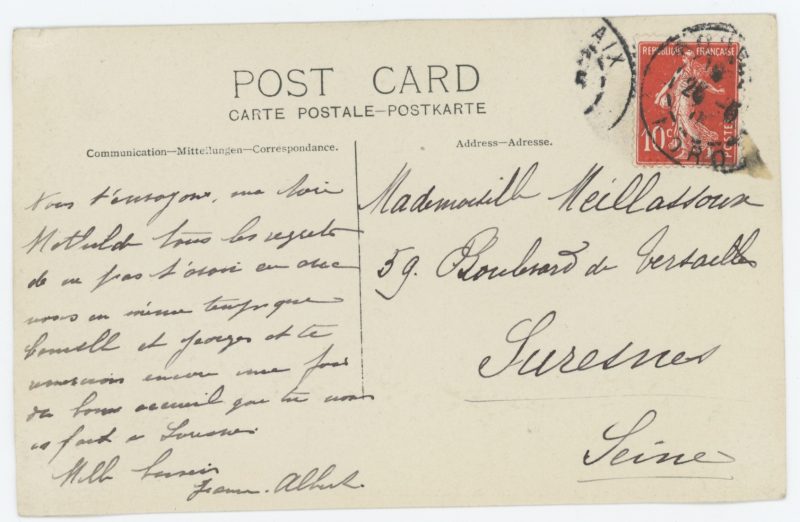 POST CARD
CARTE POSTALE—POSTKARTE
Communication—Mitteilungen—Correspondance.
Address—Adresse.
REPUBLIQUE FRANÇAISE
10c
POSTES
AIX
Nous t'envoyons, ma chère
Mathilde tous les regrets
de ne pas t'avoir eu avec
nous en même temps que
et Georges et te
remercions encore une fois
du bon accueil que tu nous
as fait à Suresnes
Mille baisers
Jeanne. Albert.
Mademoiselle Meillassoux
59. Boulevard de Versailles
Suresnes
Seine